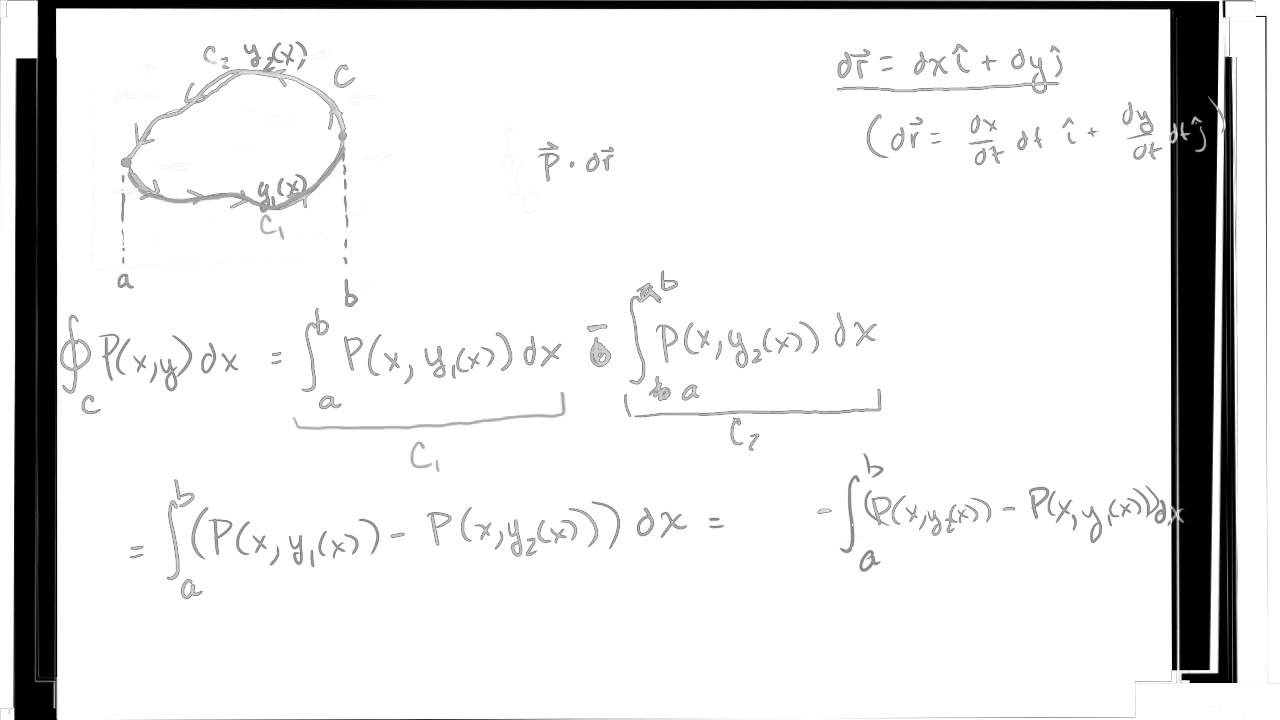 C₂ y₂(x)
C
y₁(x)
C₁
a
b
dr⃗ = dx î + dy ĵ
(dr⃗ = dx/dt dt î + dy/dt dt ĵ)
P⃗ · dr⃗
∮_C P(x,y) dx = ∫_a^b P(x, y₁(x)) dx - ∫_a^b P(x, y₂(x)) dx
C₁
C₂
= ∫_a^b (P(x, y₁(x)) - P(x, y₂(x))) dx = - ∫_a^b (P(x, y₂(x)) - P(x, y₁(x))) dx